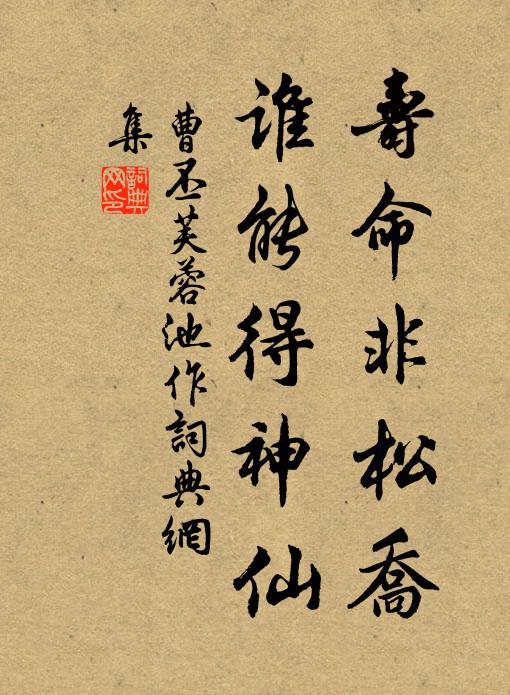 壽命非松喬
誰能得神仙
曹丕芙蓉池作詞典網
集
詞典
网印